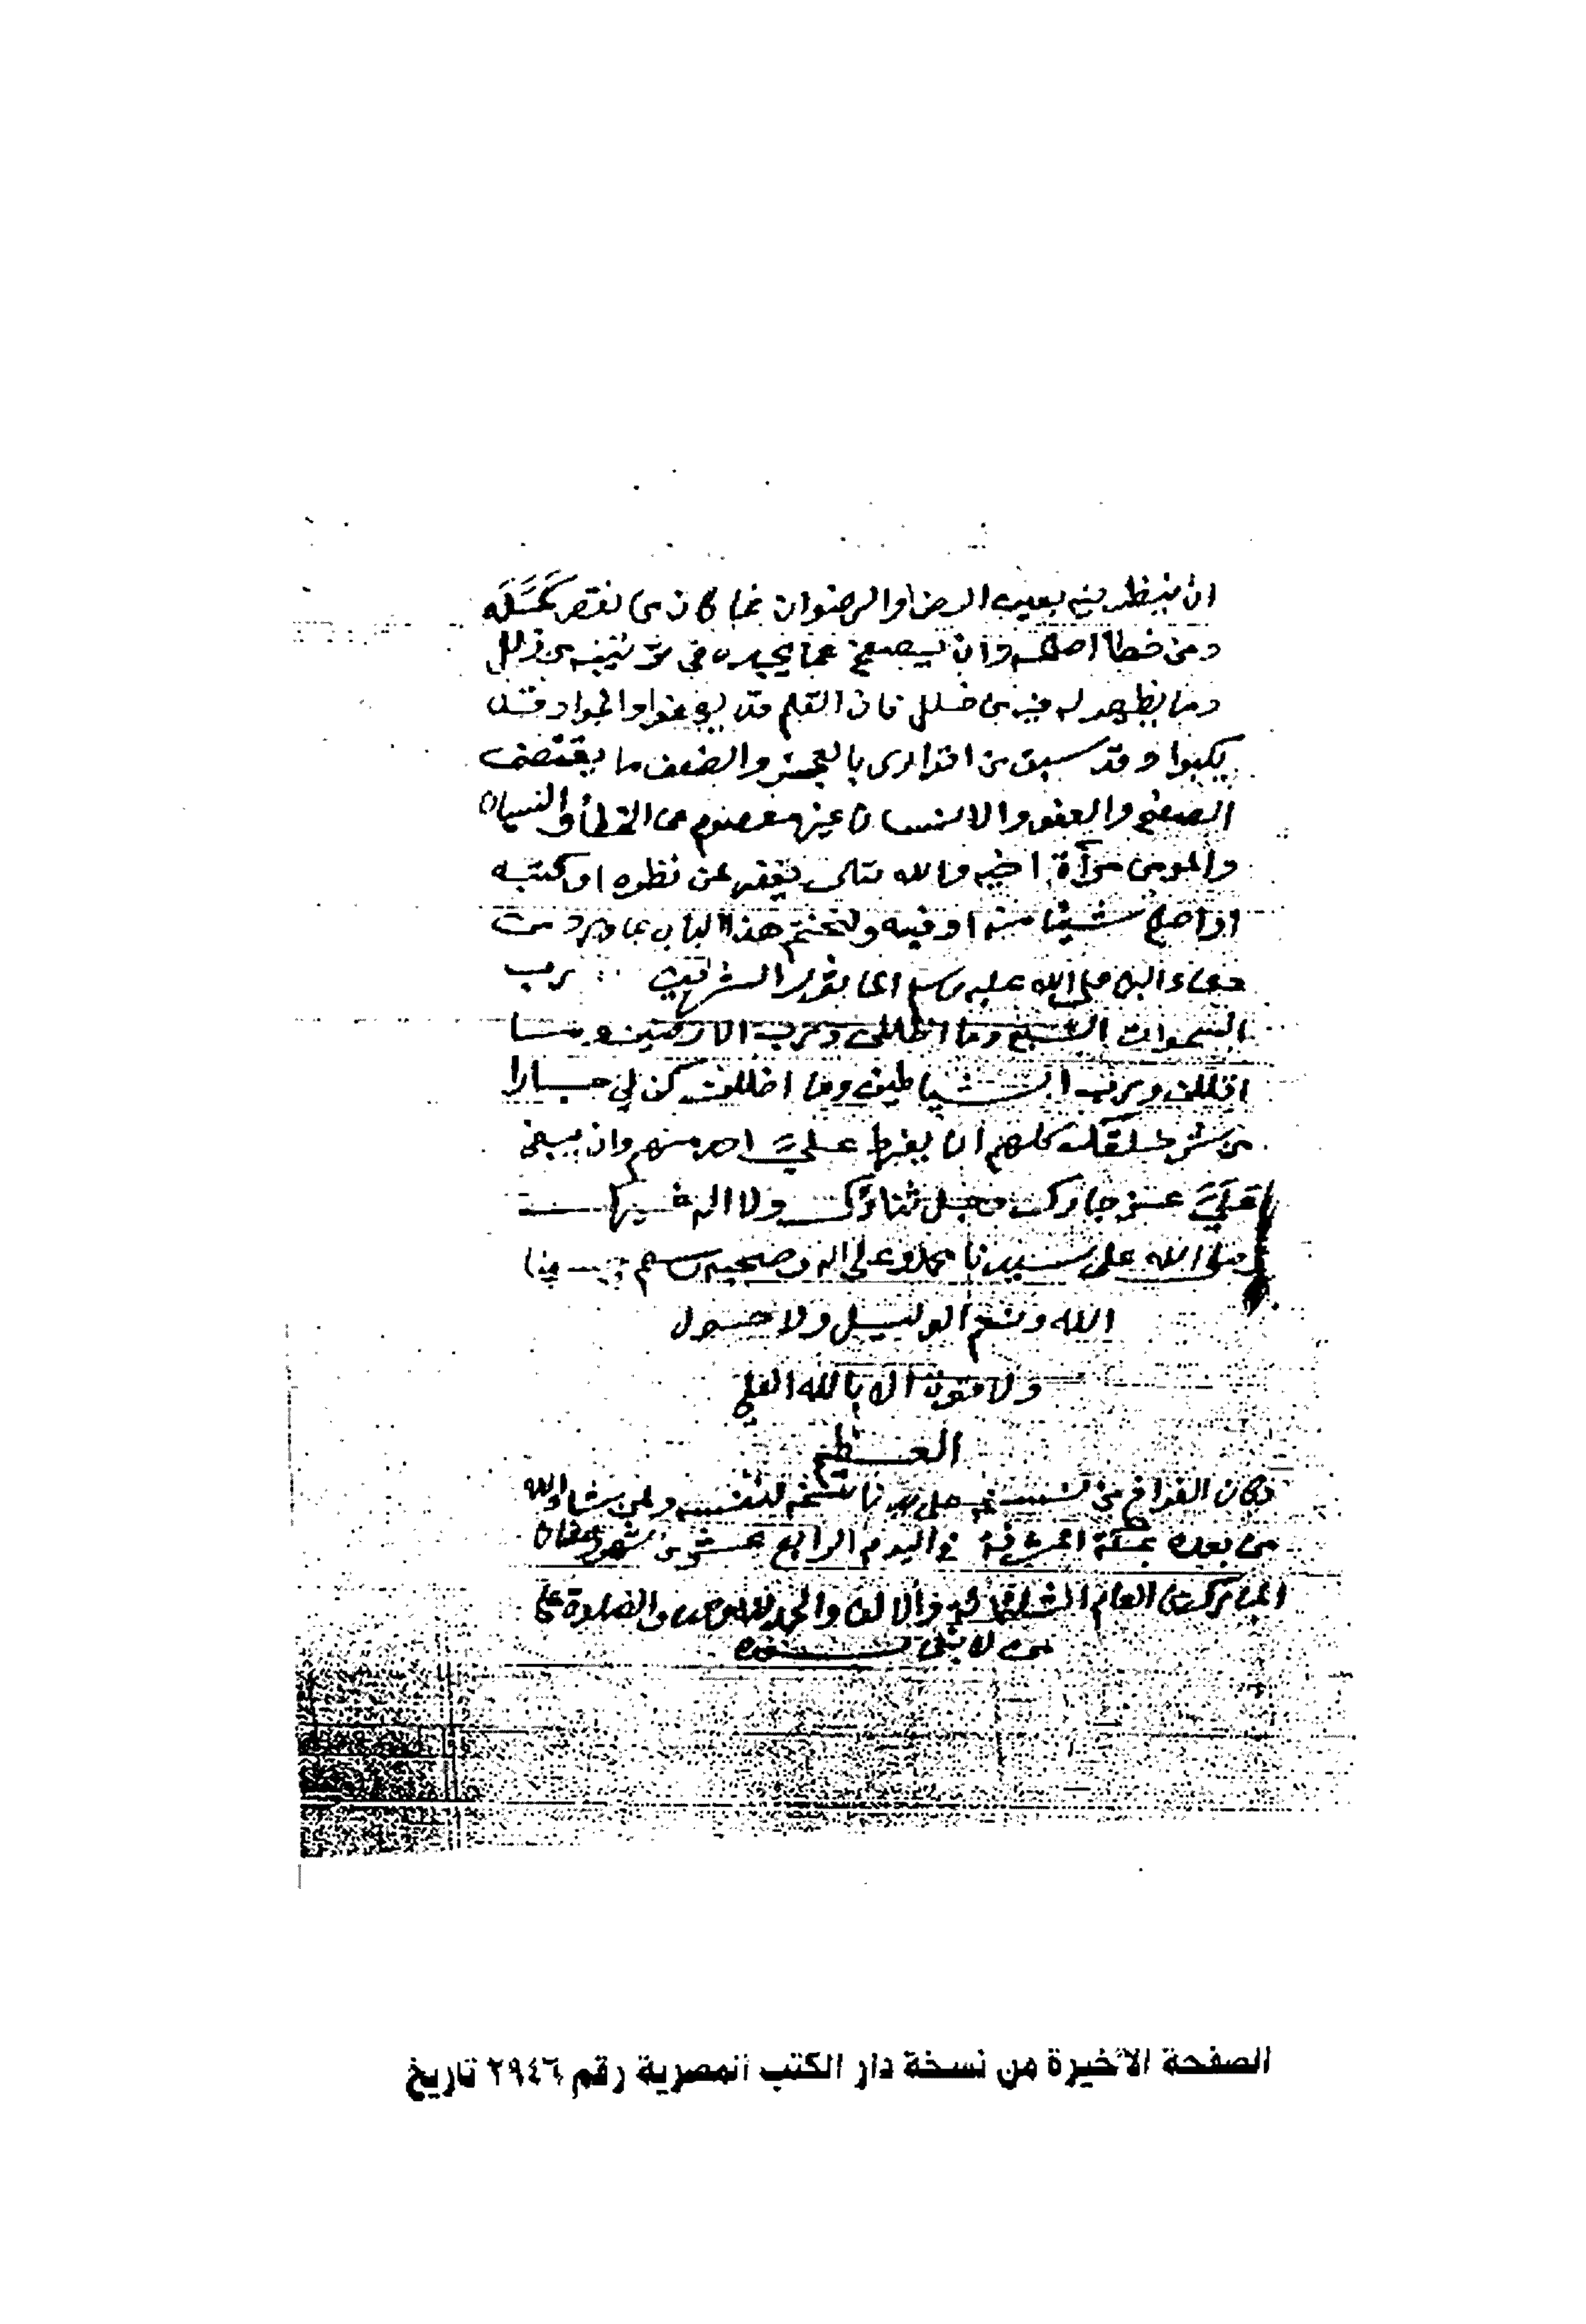 ان ينظر فيه بعين الرضا والرضوان فما كان من نقص كمّله
ومن خطا اصلحه وان يصفح عما يجده في من زلل
وما يظهر له فيه من خلل فان القلم قد والجواد قد
يكبوا وقد سبق من اقراري بالعجز والضعف ما يقتضي
الصفح والعفو والانسان غير معصوم من الخطأ والنسيان
والمومن مرآة اخيه والله تعالى ينفع من نظره او كتبه
او اصلح شيئا منه او فيه ولنختم هذا الباب بما ورد من
دعاء النبي صلى الله عليه وسلم رب
السموات السبع وما اظللن ورب الارضين وما
اقللن ورب الشياطين وما اضللت كن لي جارا
من شر خلقك كلهم ان يفرط عليّ احد منهم وان يبغي
عليّ عز جارك وجل ثناؤك ولا اله غيرك
وصلى الله على سيدنا محمد وعلى اله وصحبه وسلم حسبنا
الله ونعم الوكيل ولا حول
ولا قوة الا بالله العلي
العظيم
وكان الفراغ من نسخه على يد ناسخه لنفسه ولمن شاء الله
من بعده بمكة المشرفة في اليوم الرابع عشر من شهر رمضان
المبارك من العام والالف والحمد لله وحده والصلوة على
من لا نبي بعده
الصفحة الأخيرة من نسخة دار الكتب المصرية رقم ٢٩٤٦ تاريخ